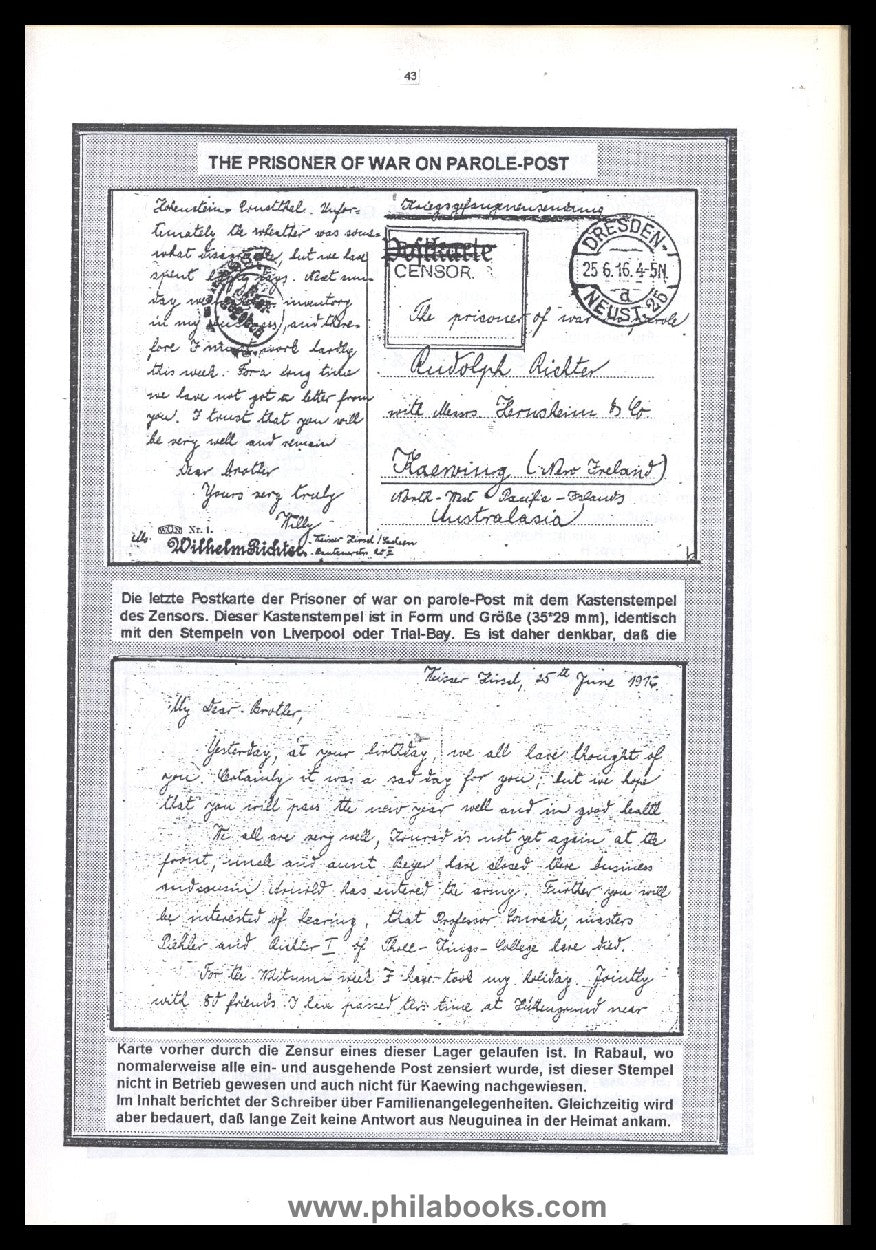 43
THE PRISONER OF WAR ON PAROLE-POST
Hohenstein-Ernstthal. Unfor-
tunately the wheather was some-
what, but we have
spent days. Next mon-
day we inventory
in my business, and there-
fore I must work hardly
this week. For a long time
we have not got a letter from
you. I trust that you will
be very well and remain
dear brother
Yours very truly
Willy
Nr. 1.
Wilhelm Richter
Kriegsgefangenensendung
Postkarte
CENSOR.
DRESDEN-
25 6.16. 4-5N
a
NEUST. 25
The prisoner of war parole
Rudolph Richter
with Messrs Hernsheim & Co
Kaewing (New Ireland)
North-West Pacific-Islands
Australasia
Die letzte Postkarte der Prisoner of war on parole-Post mit dem Kastenstempel
des Zensors. Dieser Kastenstempel ist in Form und Größe (35*29 mm), identisch
mit den Stempeln von Liverpool oder Trial-Bay. Es ist daher denkbar, daß die
25th June 1916.
My Dear Brother,
Yesterday, at your birthday, we all have thought of
you. Certainly it was a sad day for you, but we hope
that you will pass the new year well and in good health
We all are very well, Konrad is not yet again at the
front, uncle and aunt have closed there business
and cousin Arnold has entered the army. Further you will
be interested of hearing, that Professor Conradi, masters
Pichler and Richter I of Three-Kings-College have died.
For the week I have took my holiday. Jointly
with friends I have passed this time at Hüttengrund near
Karte vorher durch die Zensur eines dieser Lager gelaufen ist. In Rabaul, wo
normalerweise alle ein- und ausgehende Post zensiert wurde, ist dieser Stempel
nicht in Betrieb gewesen und auch nicht für Kaewing nachgewiesen.
Im Inhalt berichtet der Schreiber über Familienangelegenheiten. Gleichzeitig wird
aber bedauert, daß lange Zeit keine Antwort aus Neuguinea in der Heimat ankam.
www.philabooks.com